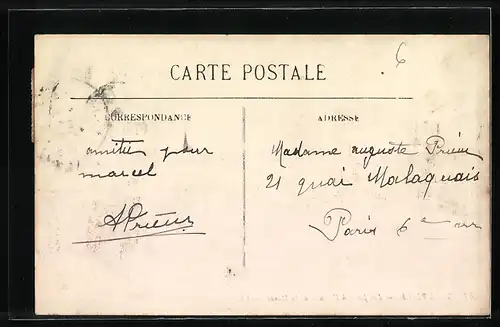 6
CARTE POSTALE
CORRESPONDANCE
ADRESSE
amitiés pour
marcel
A Prieur
Madame auguste Prieur
21 quai Malaquais
Paris 6eme arr